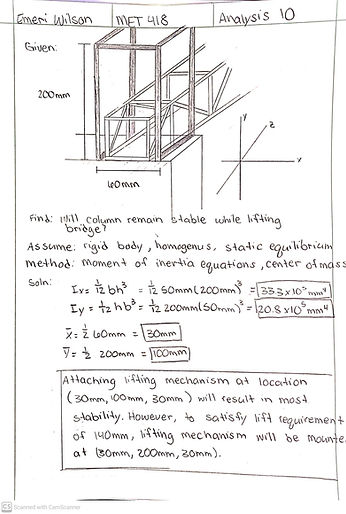 Emeri Wilson MET 418 Analysis 10
Given:
200mm
60mm
y
z
x
Find: Will column remain stable while lifting
bridge?
Assume: rigid body, homogenus, static equilibrium
method: moment of inertia equations, center of mass
Soln:
Ix = 1/12 bh³ = 1/12 50mm(200mm)³ = 33.3 x10⁶ mm⁴
Iy = 1/12 hb³ = 1/12 200mm(50mm)³ = 20.8 x10⁵ mm⁴
x̄ = 1/2 60mm = 30mm
ȳ = 1/2 200mm = 100mm
Attaching lifting mechanism at location
(30mm, 100mm, 30mm) will result in most
stability. However, to satisfy lift requirement
of 140mm, lifting mechanism will be mounte
at (30mm, 200mm, 30mm).
CS Scanned with CamScanner